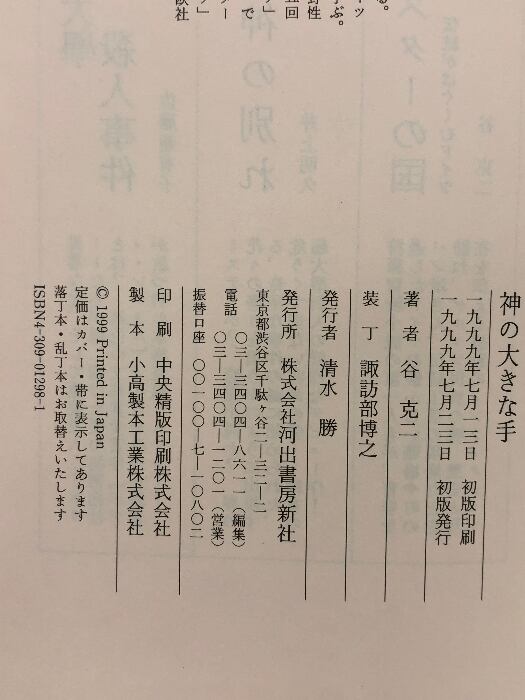 る。
神の大きな手
一九九九年七月一三日　初版印刷
一九九九年七月二三日　初版発行
著　者　谷　克二
装　丁　諏訪部博之
発行者　清水　勝
発行所　株式会社河出書房新社
東京都渋谷区千駄ヶ谷二―三二―二
電話　〇三―三四〇四―八六一一（編集）
〇三―三四〇四―一二〇一（営業）
振替口座　〇〇一〇〇―七―一〇八〇二
印　刷　中央精版印刷株式会社
製　本　小高製本工業株式会社
© 1999 Printed in Japan
定価はカバー・帯に表示してあります
落丁本・乱丁本はお取替えいたします
ISBN4-309-01298-1